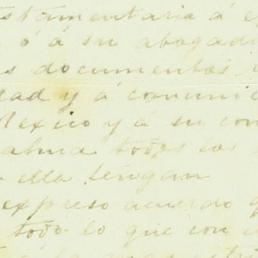 estamentaria á e
ó á su abogad
s documentos
dad y á comuni
Mexico y á su con
alma todos los
ella tengan
expreso acuerdo q
todo lo que con